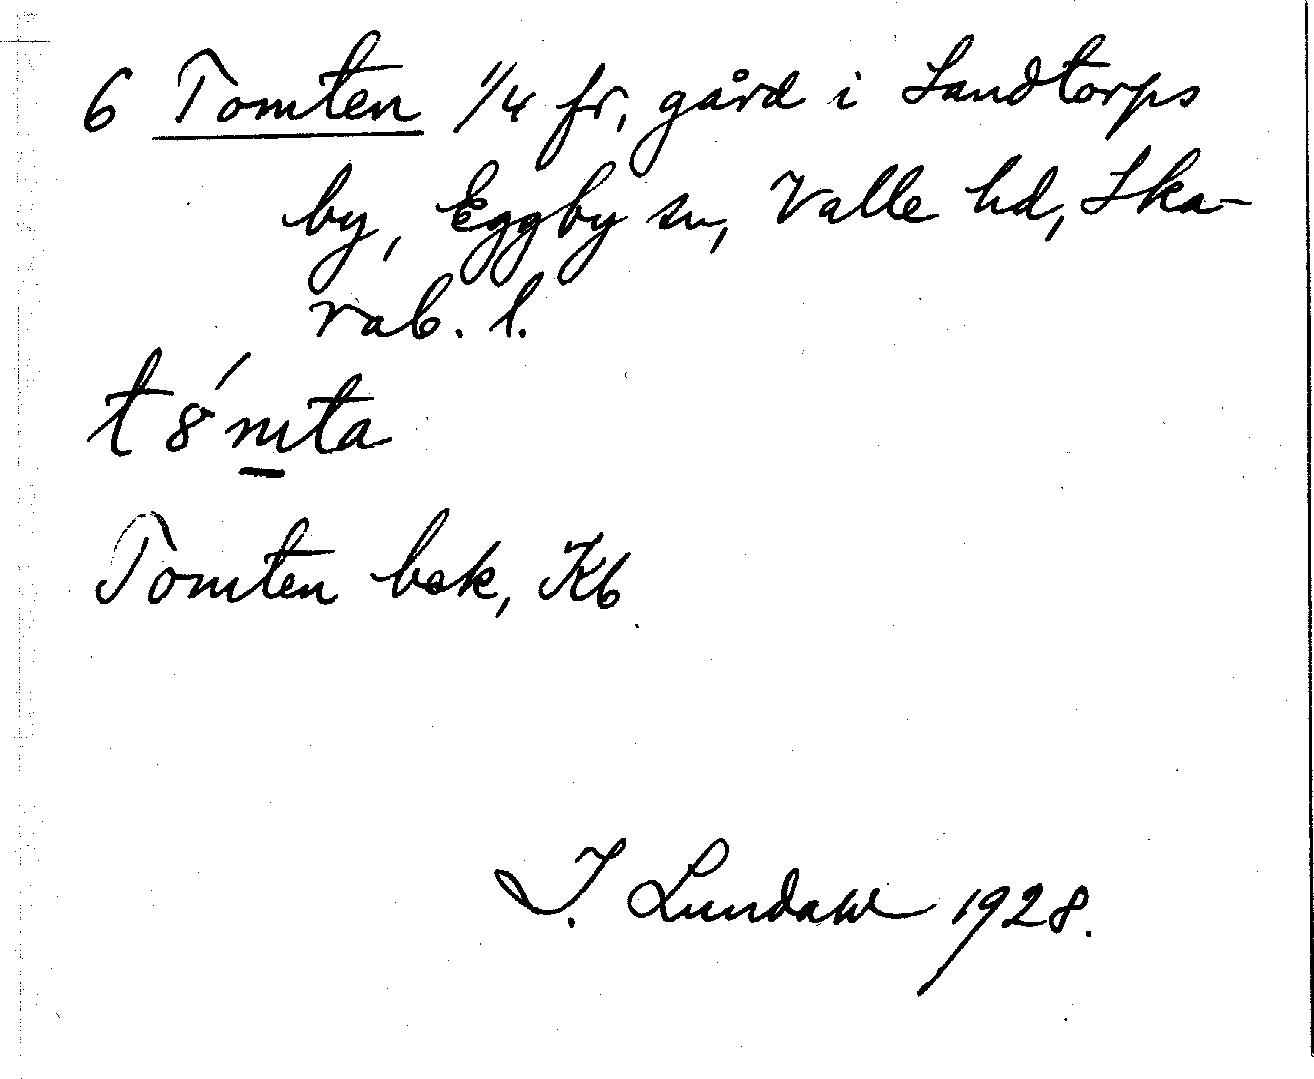 6 Tomten 1/4 fr, gård i Sandtorps
by, Eggby sn, Valle hd, Ska-
rab. l.
t8´mta
Tomten bek, Kb
I. Lundahl 1928.